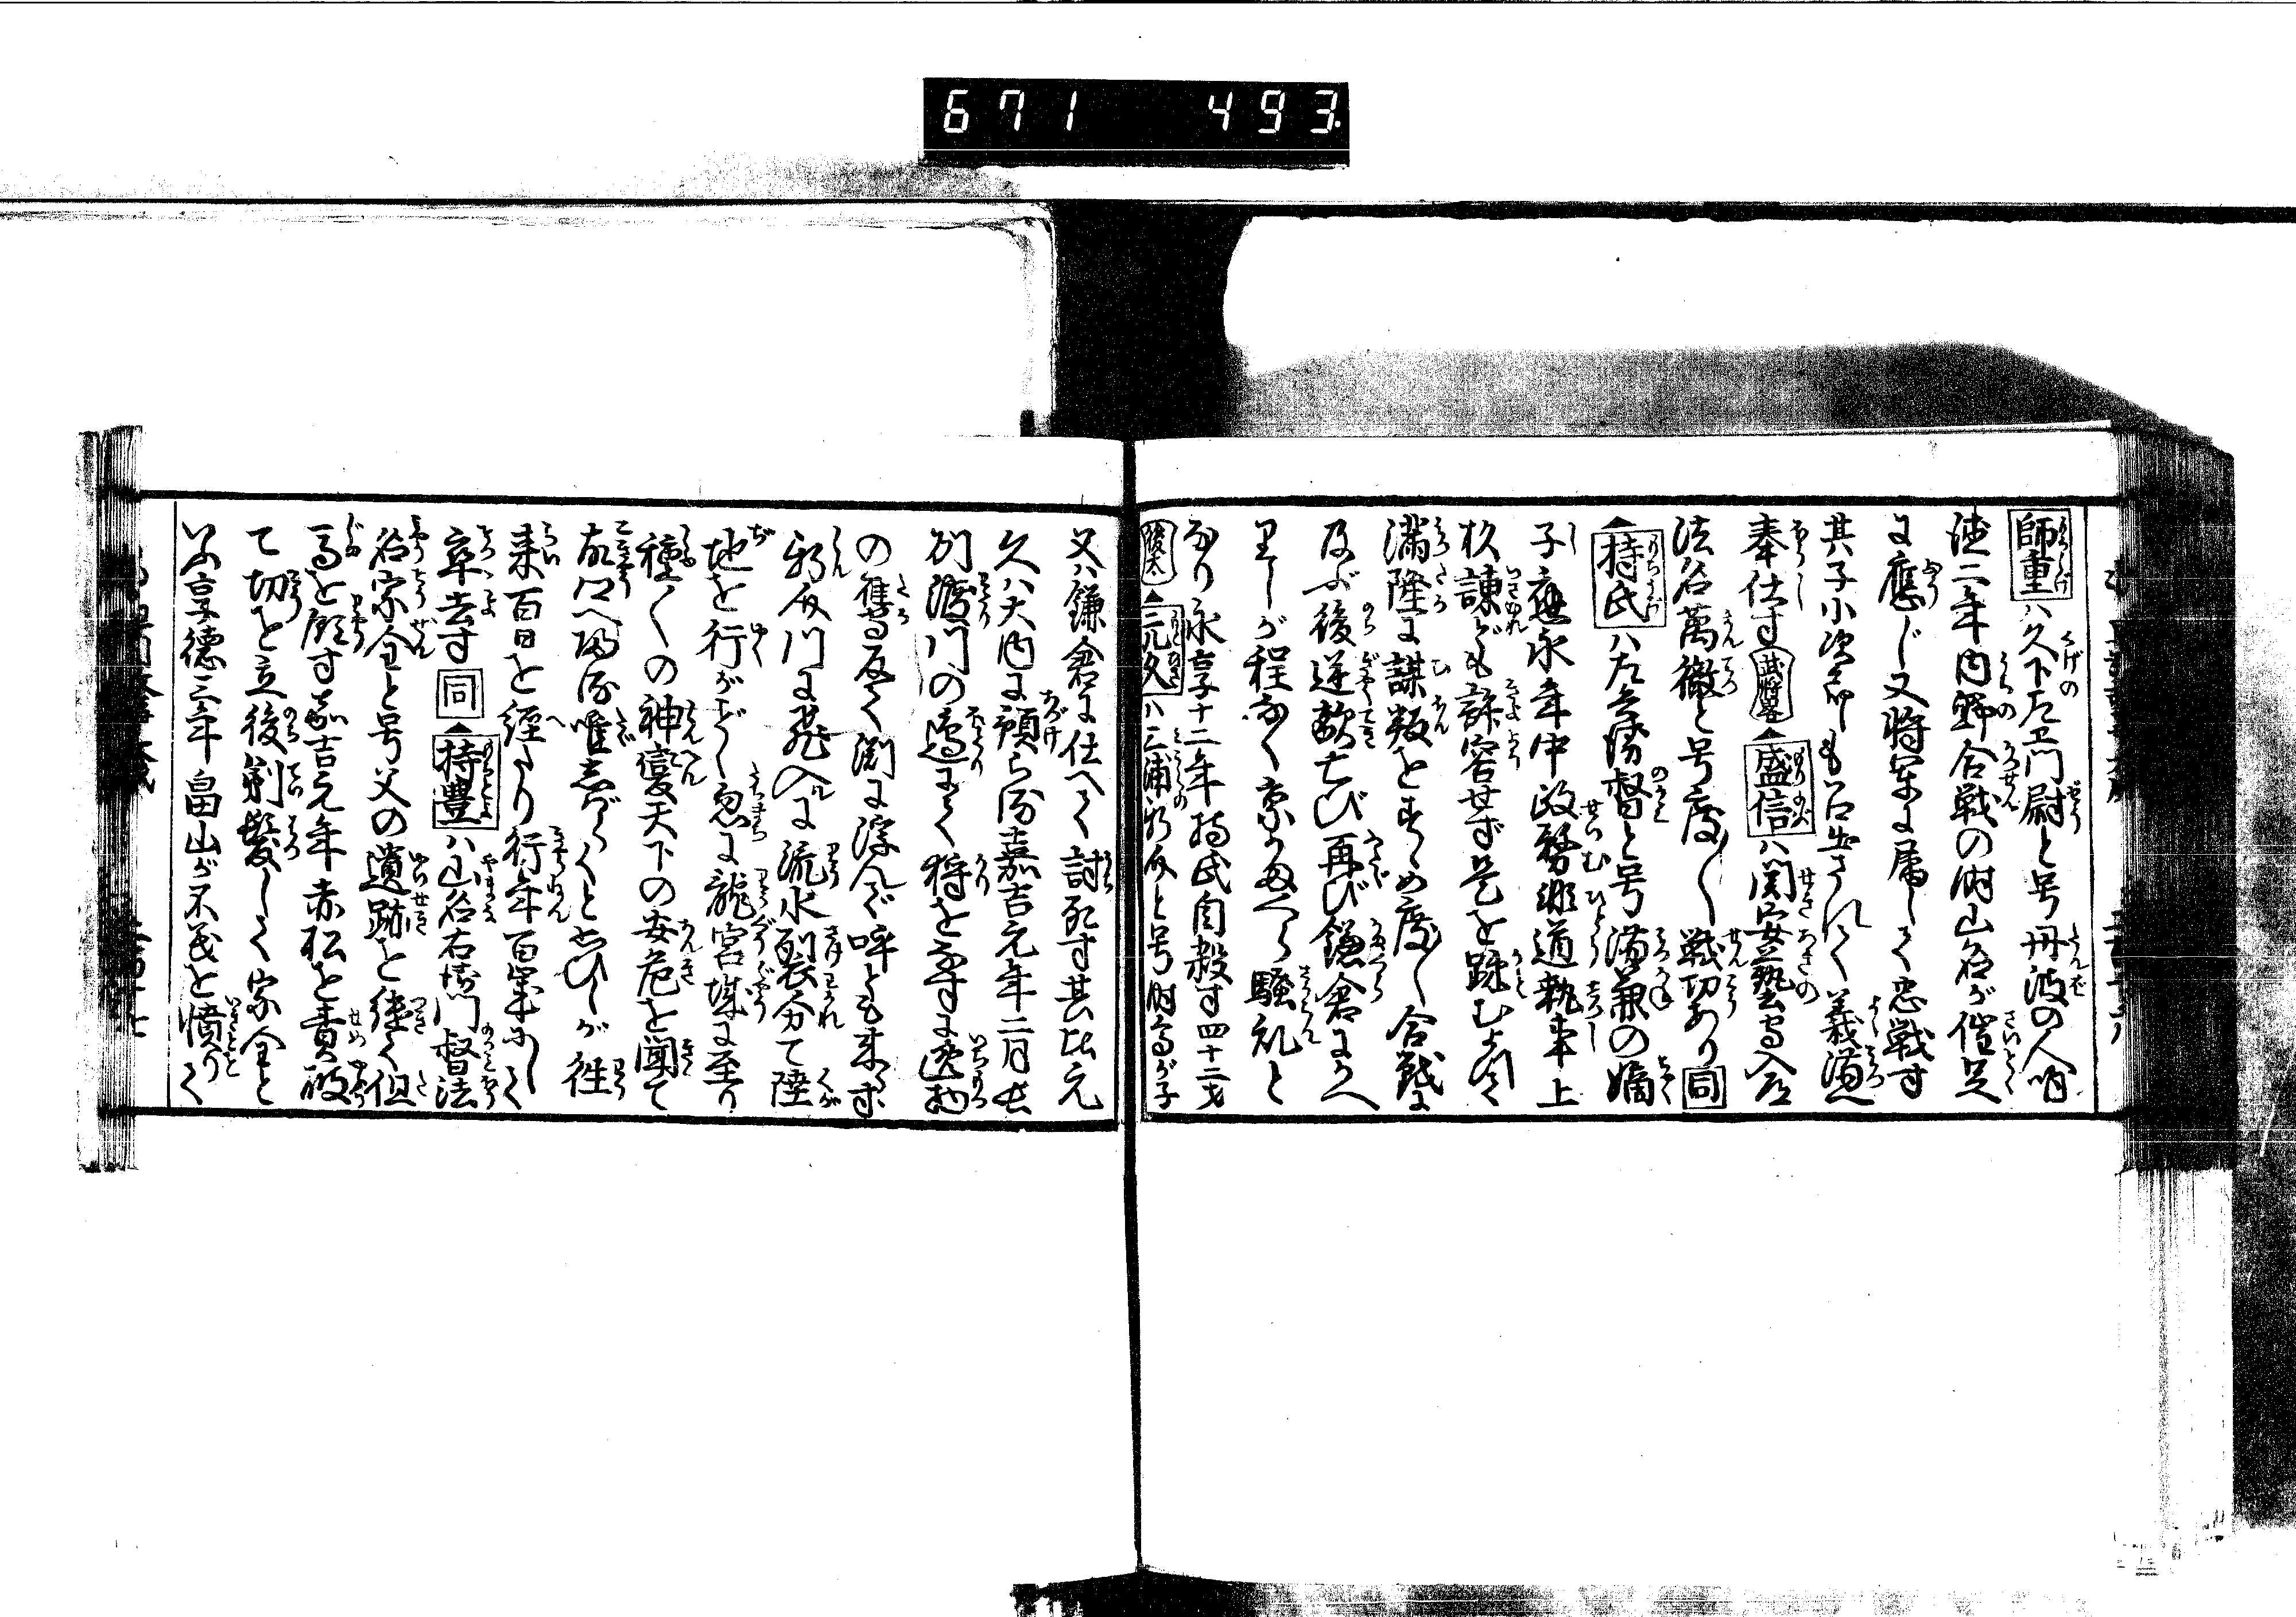 671 493
師重ハ久下左衛門尉と号丹波の人明
徳二年内野合戦の時山名が催足
に應じ又将軍に属して忠戦す
其子小次郎も召出されて義満に
奉仕す 盛信ハ関安藝守入道
法名萬徹と号度〻戦功あり同
持氏ハ左兵衛督と号満兼の嫡
子應永年中政務非道執事上
杦諫れども許容せず是を疎むよつて
満隆に謀叛をすゝめ度〻合戦に
及ぶ後逆敵亡び再び鎌倉にかへ
りしが程なく京 騒乱と
なり永享十二年持氏自殺す四十二才
元久ハ三浦 と号時高が子
又ハ鎌倉に仕へて討死す其比元
久ハ大内に預らる嘉吉元年二月
川の邉にて狩をなすに逸物
の隼る反て渕に浮んで呼ども来らず
川に飛入ルに流水裂分て陸
地を行がごく忽に龍宮城に至り
種〻の神變天下の安危を聞て
故郷へ帰る唯志ばらくと思ひしが往
来百日を經たり行年百歳にして
卒去す同 持豊ハ山名右衛門督法
名宗全と号父の遺跡を継て但
馬を領す嘉吉元年赤松を責破
て切を立後剃髪して宗全と
いふ享徳三年畠山が不義を憤りて